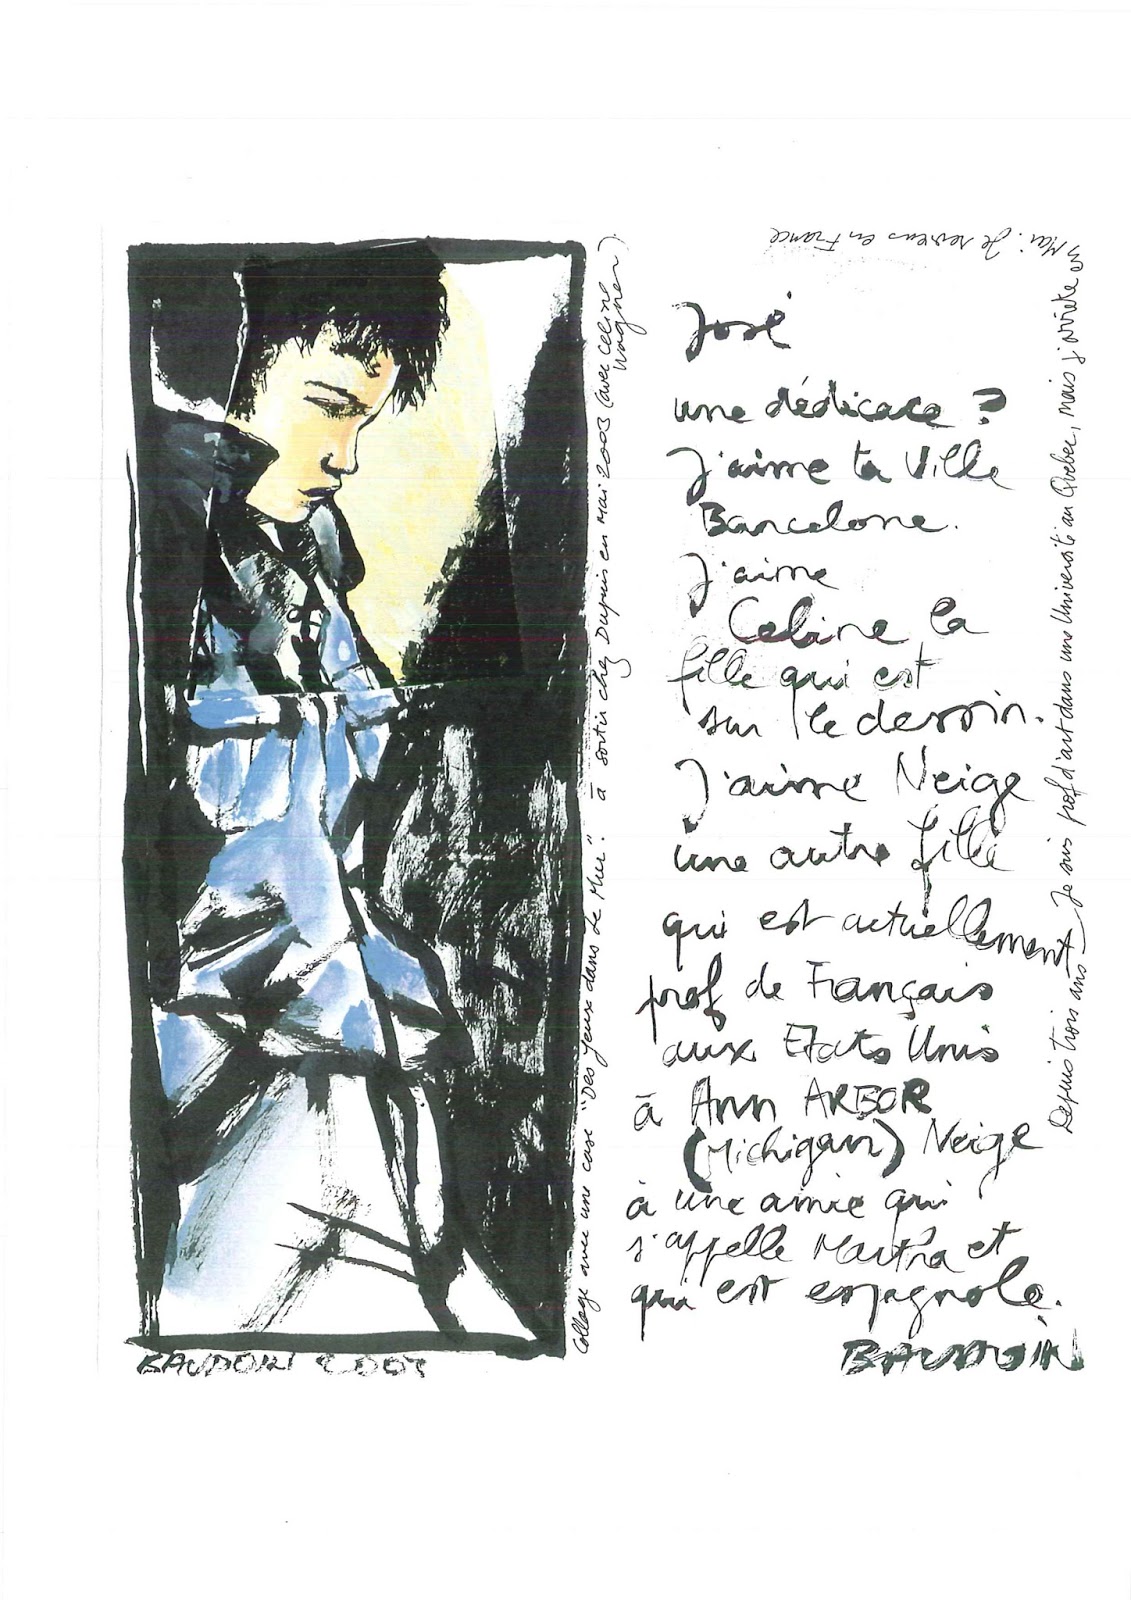 José
une dédicace ?
J'aime ta Ville
Barcelone.
J'aime
Celine la
fille qui est
sur le dessin.
J'aime Neige
une autre fille
qui est actuellement
prof de Français
aux Etats Unis
à Ann ARBOR
(Michigan) Neige
à une amie qui
s'appelle Martha et
qui est espagnole.
BAUDOIN
Depuis trois ans Je suis prof d'art dans une Université au Quebec, mais j'arrête en
Mai. Je reviens en France
Collage avec une case "Des Yeux dans le Mur." à sortir chez Dupuis en Mai 2003 (avec Celine
Wagner).
BAUDOIN 2003